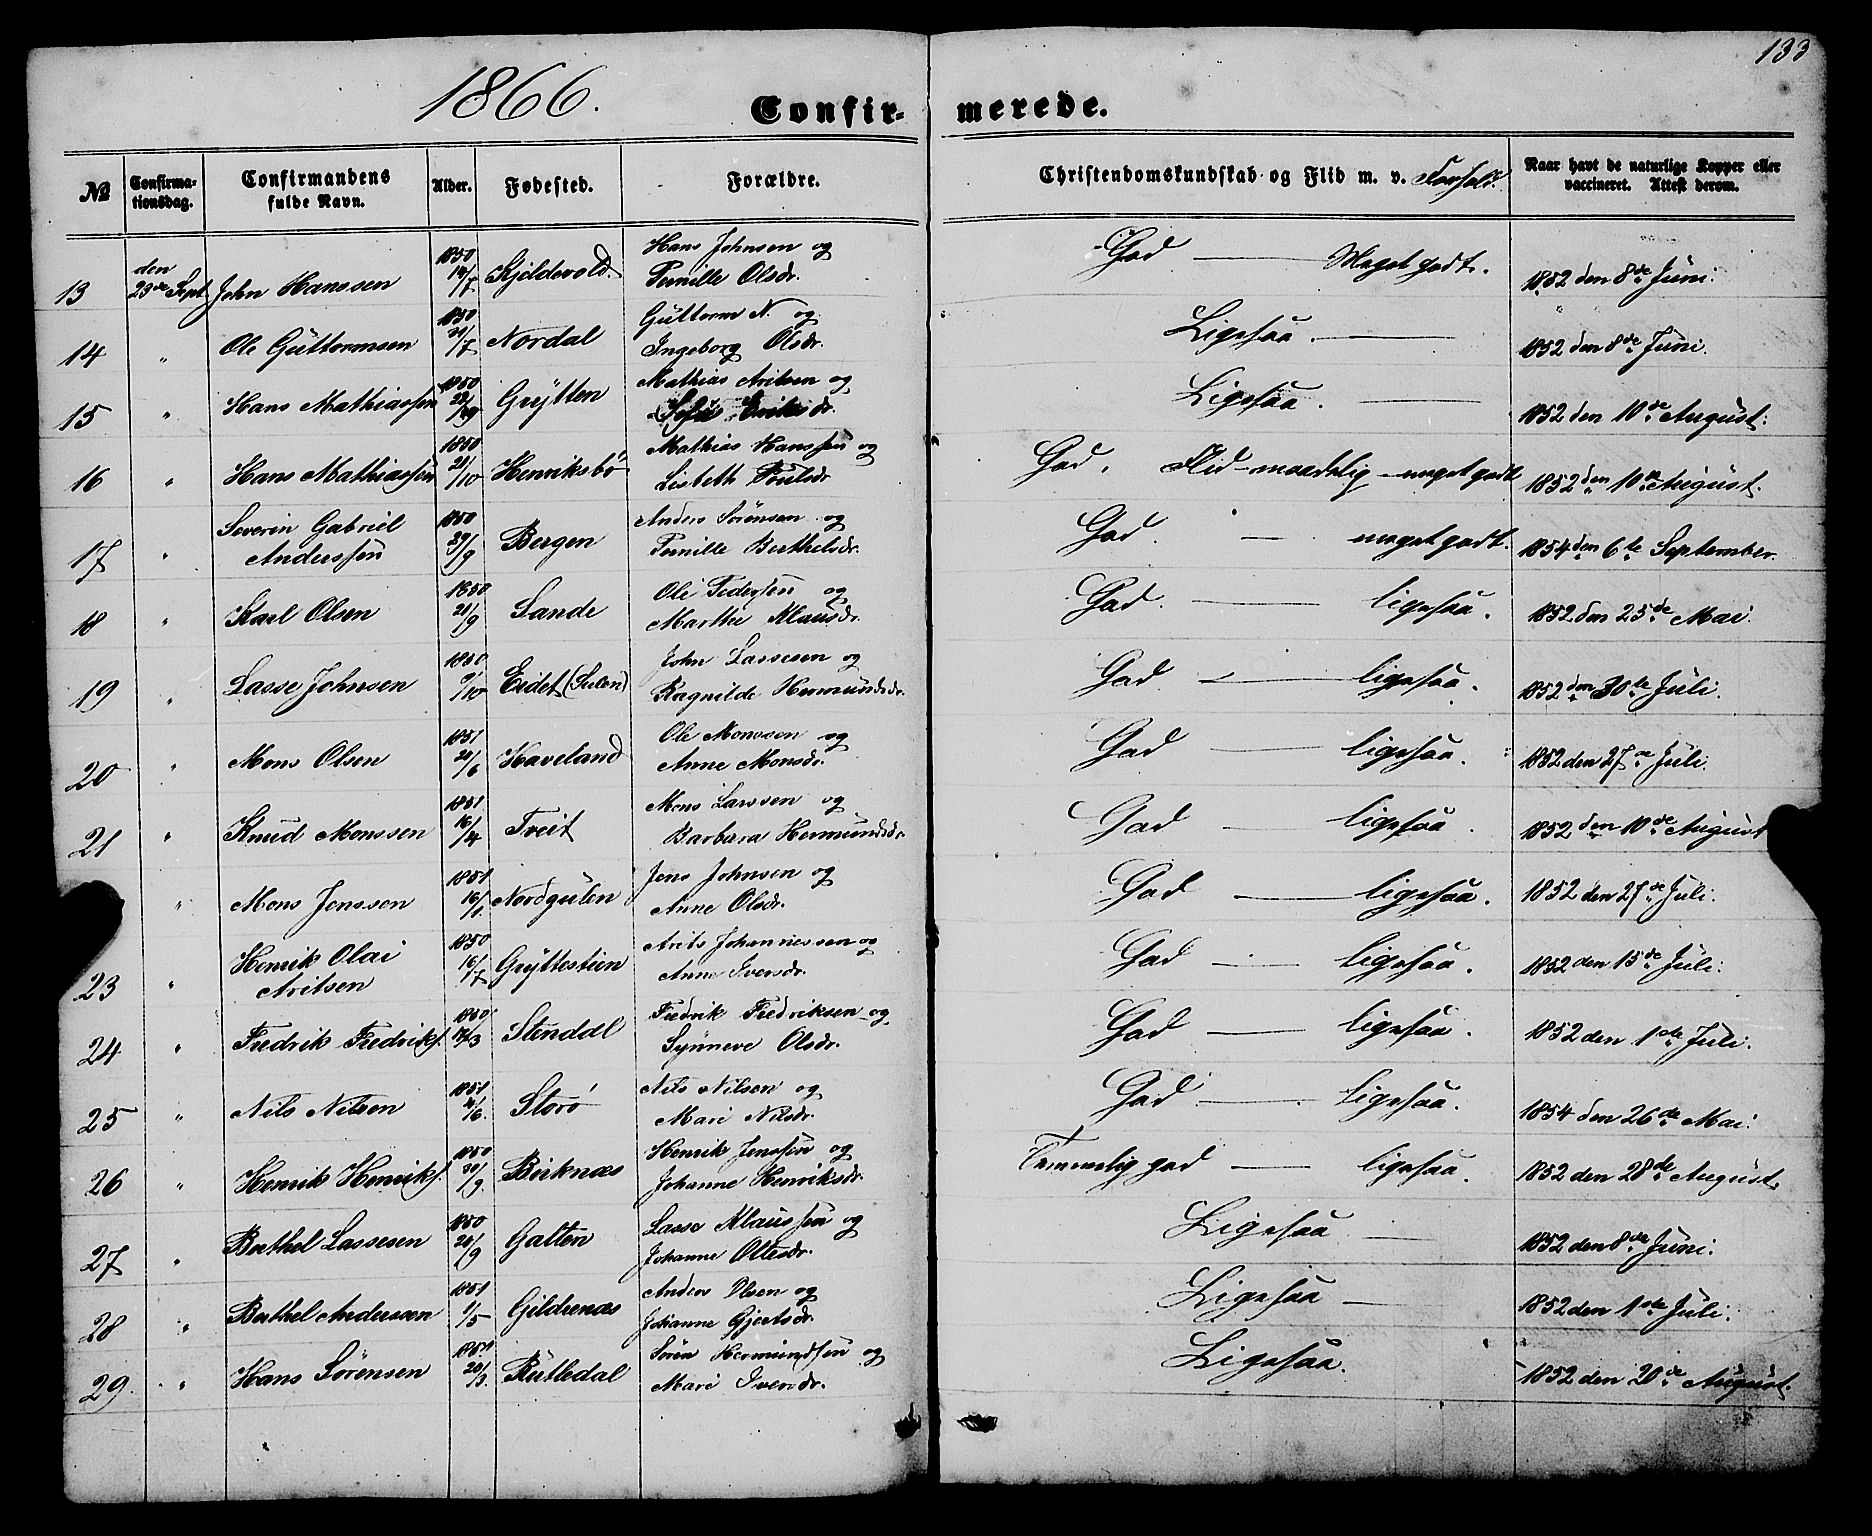 133
1866.
Confir- merede.
No
Confirma-
tionsdag.
Confirmandens
fulde Navn.
Alder.
Fødested.
Forældre.
Christendomskundskab og Flid m. v. Forhold.
Naar havt de naturlige Kopper eller
vaccineret. Attest derom.
13 den 23de Sept John Hanssen 1850 14/7 Kjeldevold. Hans Johnsen og
Pernille Olsdr. God — Meget godt. 1852 den 8de Juni.
14 " Ole Guttormsen 1850 21/7 Nordal Guttorm N. og
Ingeborg Olsdr. Ligesaa. — 1852 den 8de Juni.
15 " Hans Mathiassen 1850 Grytten Mathias Aritsen og
Ligesaa. — 1852 den 10de August.
16 " Hans Mathiassen 1850 21/10 Henriksbø Mathias Hanssen og
Lisbeth Poulsdr God. Flid maadelig meget godt 1852 den 10de August.
17 " Severin Gabriel
Anderssen 1850 29/9 Bergen Anders Sørensen og
Pernille Berthelsdr. God. — meget godt. 1854 den 6te September.
18 " Karl Olsen 1850 21/9 Sande Ole Pedersen og
Marthe Klausdr. God. — ligesaa. 1852 den 25de Mai.
19 " Lasse Johnsen 1850 9/10 Eidet (Sulen) John Lassesen og
Ragnilde Hermundsdr. God. — ligesaa. 1852 den 30te Juli.
20 " Mons Olsen 1851 21/6 Haveland Ole Monssen og
Anne Monsdr. God — ligesaa. 1852 den 27de Juli.
21 " Knud Monssen 1851 16/4 Tveit Mons Larssen og
Barbara Hermundsdr. God — ligesaa. 1852 den 10de August
" Mons Jenssen 1851 16/1 Nordgulen Jens Johnsen og
Anne Olsdr. God — ligesaa. 1852 den 27de Juli.
23 " Henrik Olai
Aritsen 1850 16/7 Gryttestien Arits Johannessen og
Anne Iversdr. God — ligesaa. 1852 den 15de Juli.
24 " Fredrik Fredriks. 1850 Stendal Fredrik Fredriksen og
Synneve Olsdr. God — ligesaa. 1852 den 1ste Juli.
25 " Nils Nilsen 1851 Storø Nils Nilsen og
Mari Nilsdr. God — ligesaa. 1854 den 26de Mai.
26 " Henrik Henriks. 1850 30/9. Birknæs Henrik Jenssen og
Johanne Henriksdr. Temmelig god — ligesaa. 1852 den 28de August.
27 " Berthel Lassesen 1850 20/9 Galten Lasse Klaussen og
Johanne Ottesdr. Ligesaa — 1852 den 8de Juni.
28 " Berthel Anderssen 1851 1/5 Gildrenæs Anders Olsen og
Johanne Gjertsdr. Ligesaa — 1852 den 1ste Juli.
29. " Hans Sørensen 20/3. Rutledal Søren Hermundssen og
Mari Iversdr. Ligesaa. 1852 den 20de August.